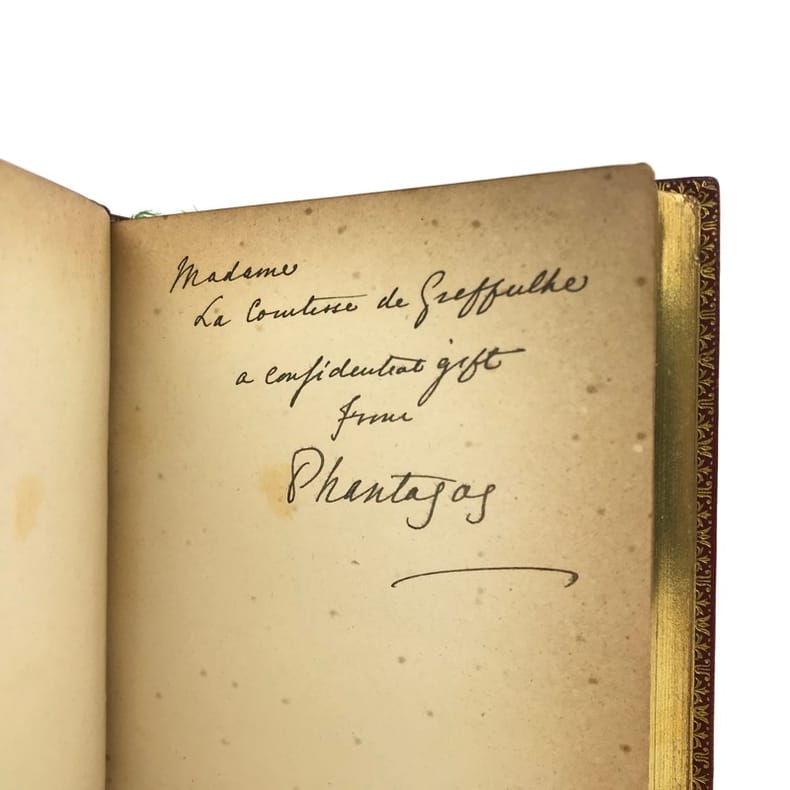 Madame
La Comtesse de Greffulhe
a confidential gift
from
Phantasos